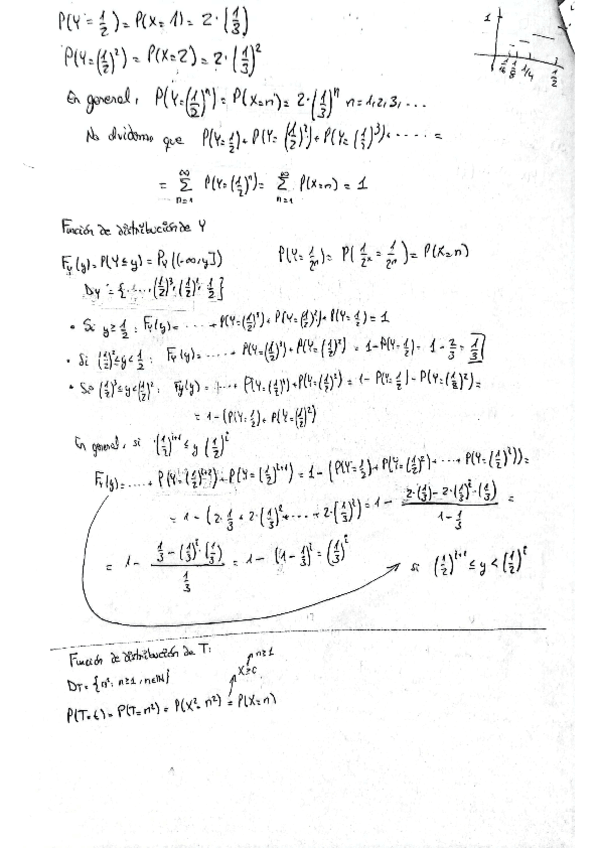 P(Y=1/2)=P(X=1)=2·(1/3)
P(Y=(1/2)²)=P(X=2)=2·(1/3)²
En general, P(Y=(1/2)ⁿ)=P(X=n)=2·(1/3)ⁿ n=1,2,3,...
No olvidemos que P(Y=1/2)+P(Y=(1/2)²)+P(Y=(1/2)³)+.....=
= ∞ Σ n=1 P(Y=(1/2)ⁿ)= ∞ Σ n=1 P(X=n)=1
1
1/16 1/8 1/4 1/2
Función de distribución de Y
F_Y(y)=P(Y≤y)=P_Y((-∞,y]) P(Y=1/2ⁿ)=P(1/2ˣ=1/2ⁿ)=P(X=n)
D_Y={...,(1/2)³,(1/2)²,1/2}
• Si y≥1/2: F_Y(y)=.....+P(Y=(1/2)³)+P(Y=(1/2)²)+P(Y=1/2)=1
• Si (1/2)²≤y<1/2: F_Y(y)=....+P(Y=(1/2)³)+P(Y=(1/2)²)=1-P(Y=1/2)=1-2/3=1/3
• Si (1/2)³≤y<(1/2)²: F_Y(y)=....+P(Y=(1/2)⁴)+P(Y=(1/2)³)=1-P(Y=1/2)-P(Y=(1/2)²)=
=1-(P(Y=1/2)+P(Y=(1/2)²)
En general, si (1/2)^{i+1}≤y (1/2)^i
F_Y(y)=....+P(Y=(1/2)^{i+2})+P(Y=(1/2)^{i+1})=1-(P(Y=1/2)+P(Y=(1/2)²)+...+P(Y=(1/2)^i))=
=1-(2·1/3+2·(1/3)²+...+2·(1/3)^i)=1-(2·(1/3)-2·(1/3)^i·(1/3))/(1-1/3)=
=1-(1/3-(1/3)^i·(1/3))/(1/3)=1-(1-1/3)^i=(1/3)^i si (1/2)^{i+1}≤y<(1/2)^i
Función de distribución de T: n≥1
D_T={n²: n≥1, n∈ℕ} X≥0
P(T=t)=P(T=n²)=P(X²=n²)=P(X=n)